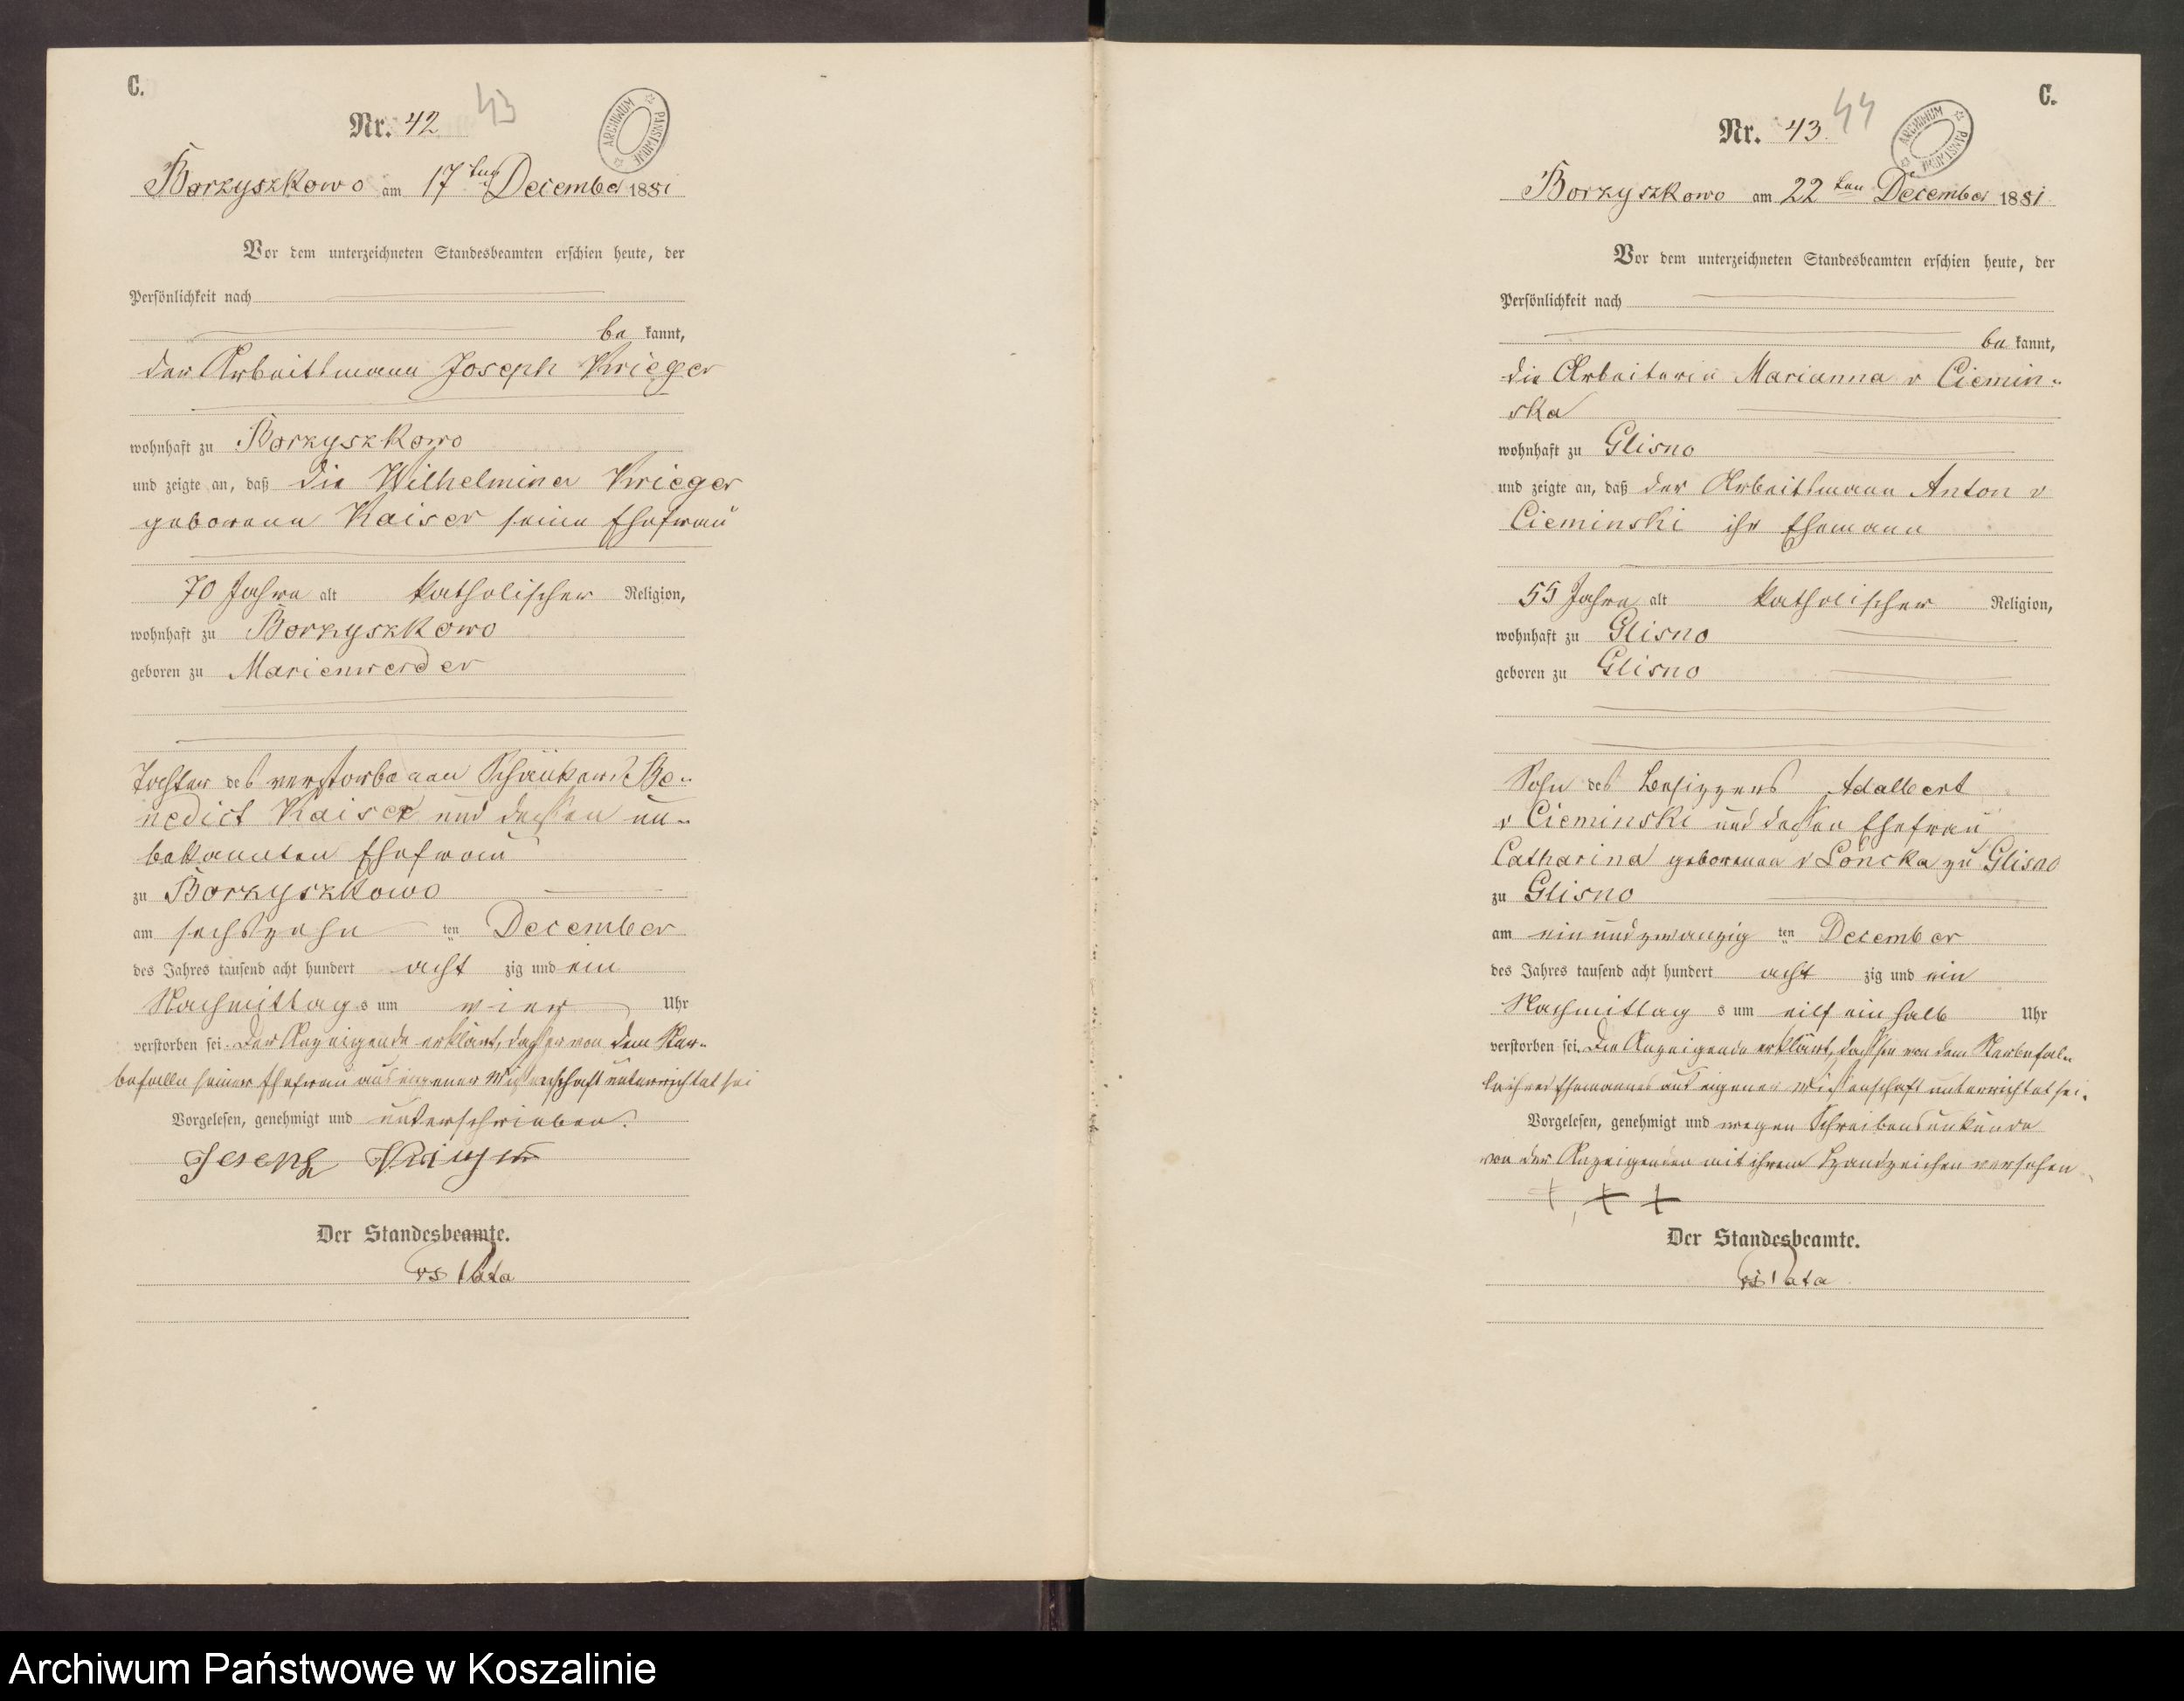 C.
Nr. 42 43
ARCHIWUM PAŃSTWOWE
Borzyszkowo am 17ten December 1881
Vor dem unterzeichneten Standesbeamten erschien heute, der
Persönlichkeit nach
be kannt,
der Arbeitsmann Joseph Krieger
wohnhaft zu Borzyszkowo
und zeigte an, daß die Wilhelmina Krieger
geborene Kaiser seine Ehefrau
70 Jahre alt katholischer Religion,
wohnhaft zu Borzyszkowo
geboren zu Marienwerder
Tochter des verstorbenen Schänkers Be-
nedict Kaiser und dessen un-
bekannten Ehefrau
zu Borzyszkowo
am sechszehn ten December
des Jahres tausend acht hundert acht zig und ein
Nachmittag s um vier Uhr
verstorben sei. Der Anzeigende erklärt, daß er von dem Ster-
befalle seiner Ehefrau aus eigener Wissenschaft unterrichtet sei
Vorgelesen, genehmigt und unterschrieben.
Joseph Krieger
Der Standesbeamte.
Pata
C.
Nr. 43. 44
ARCHIWUM PAŃSTWOWE
Borzyszkowo am 22ten December 1881
Vor dem unterzeichneten Standesbeamten erschien heute, der
Persönlichkeit nach
be kannt,
die Arbeiterin Marianna v Ciemin-
ska
wohnhaft zu Glisno
und zeigte an, daß der Arbeitsmann Anton v
Cieminski ihr Ehemann
55 Jahre alt katholischer Religion,
wohnhaft zu Glisno
geboren zu Glisno
Sohn des Besitzers Adalbert
v Cieminski und dessen Ehefrau
Catharina geborenen v Loncka zu Glisno
zu Glisno
am ein und zwanzig ten December
des Jahres tausend acht hundert acht zig und ein
Nachmittag s um eilf ein halb Uhr
verstorben sei. Die Anzeigende erklärt, daß sie von dem Sterbefal-
le ihres Ehemannes aus eigener Wissenschaft unterrichtet sei.
Vorgelesen, genehmigt und wegen Schreibensunkunde
von der Anzeigenden mit ihrem Handzeichen versehen
+ + +
Der Standesbeamte.
Pata
Archiwum Państwowe w Koszalinie